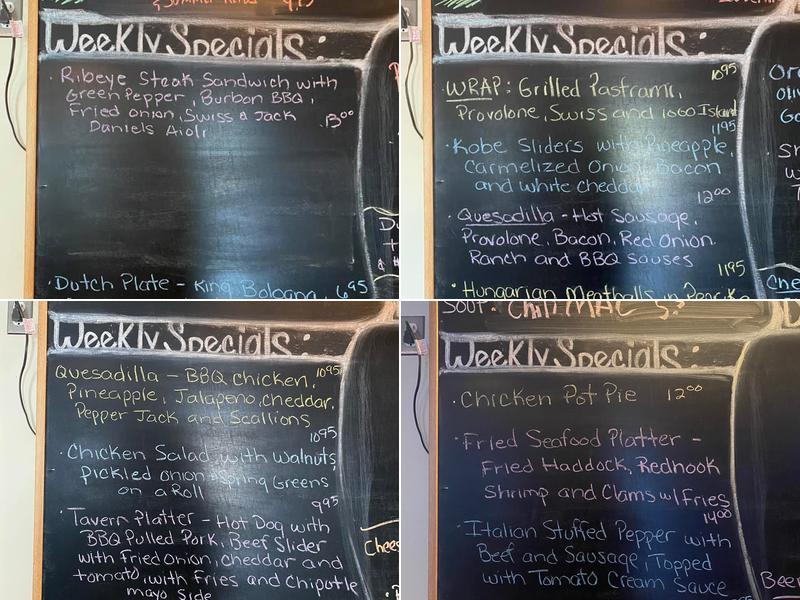 & Summer
Weekly Specials:
· Ribeye Steak Sandwich with
Green Pepper, Burbon BBQ,
Fried onion, Swiss & Jack
Daniels Aioli 13.00
· Dutch Plate - King Bologna, 6.95
Weekly Specials:
· WRAP: Grilled Pastrami, 10.95
Provolone, Swiss and 1000 Island
· Kobe Sliders with Pineapple, 11.95
Carmelized Onion, Bacon
and white cheddar
· Quesadilla - Hot Sausage, 12.00
Provolone, Bacon, Red Onion
Ranch and BBQ sauses
· Hungarian Meatballs in 11.95
Weekly Specials:
Quesadilla - BBQ chicken, 10.95
Pineapple, Jalapeno, cheddar,
Pepper Jack and Scallions
· Chicken Salad with Walnuts 10.95
pickled onion + Spring Greens
on a Roll
· Tavern Platter - Hot Dog with 9.95
BBQ Pulled Pork, Beef Slider
with Fried Onion, cheddar and
tomato, with Fries and Chipotle
mayo Side
Chees
Soup: Chili MAC
Weekly Specials:
· Chicken Pot Pie 12.00
· Fried Seafood Platter -
Fried Haddock, Rednook
Shrimp and Clams w/ Fries
· Italian Stuffed Pepper with 14.00
Beef and Sausage, Topped
with Tomato Cream Sauce
Beer